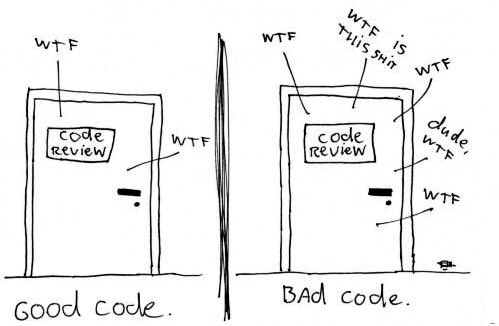 WTF
CODE
REVIEW
WTF
GOOD CODE.
WTF
WTF is
THIS SHIT
WTF
CODE
REVIEW
dude,
WTF
WTF
BAd code.